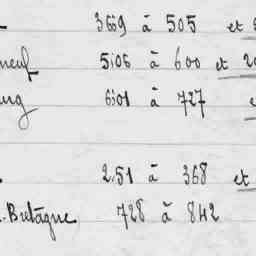 3669 à 505 et
neuf 5106 à 600 et 20
urg 6301 à 727
251 à 368 et
. Bretagne 728 à 842